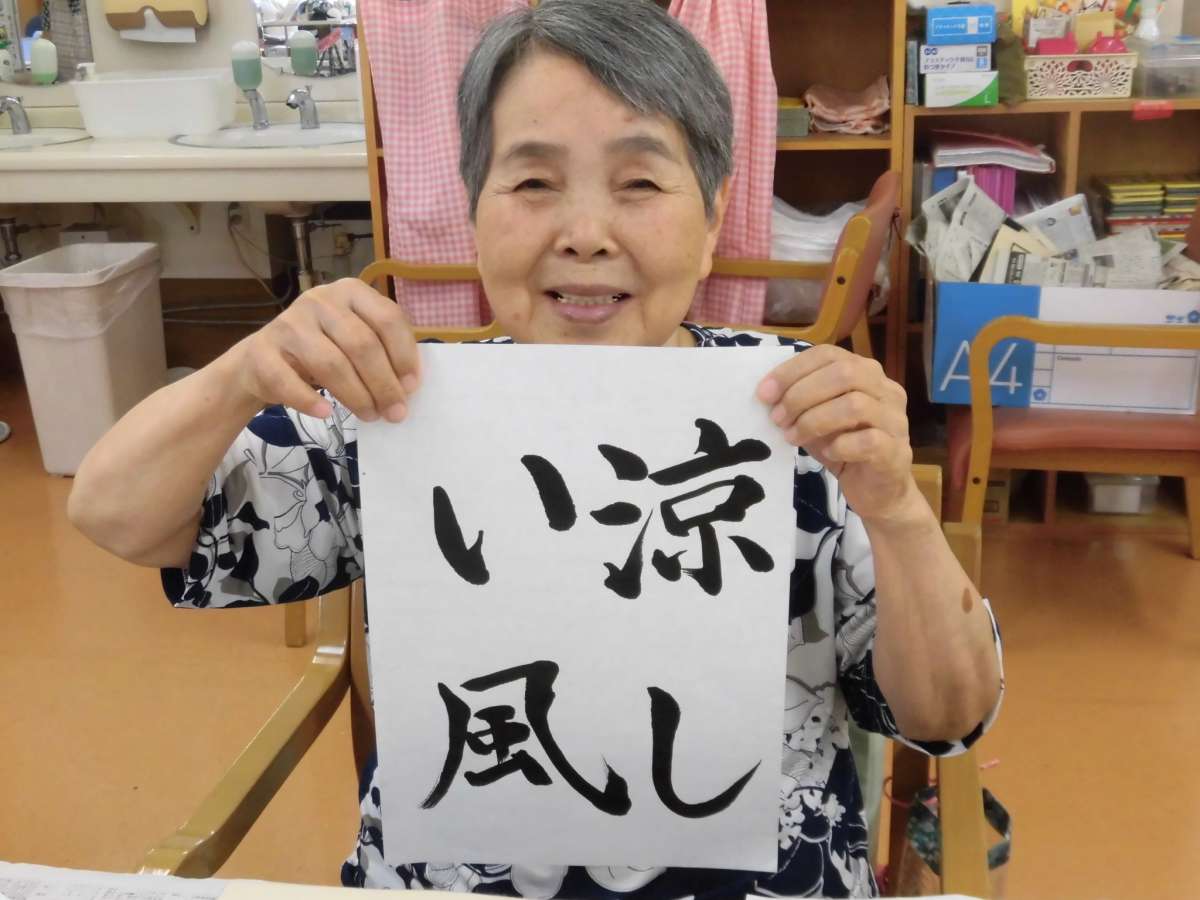 涼し
い風
A4
Contents